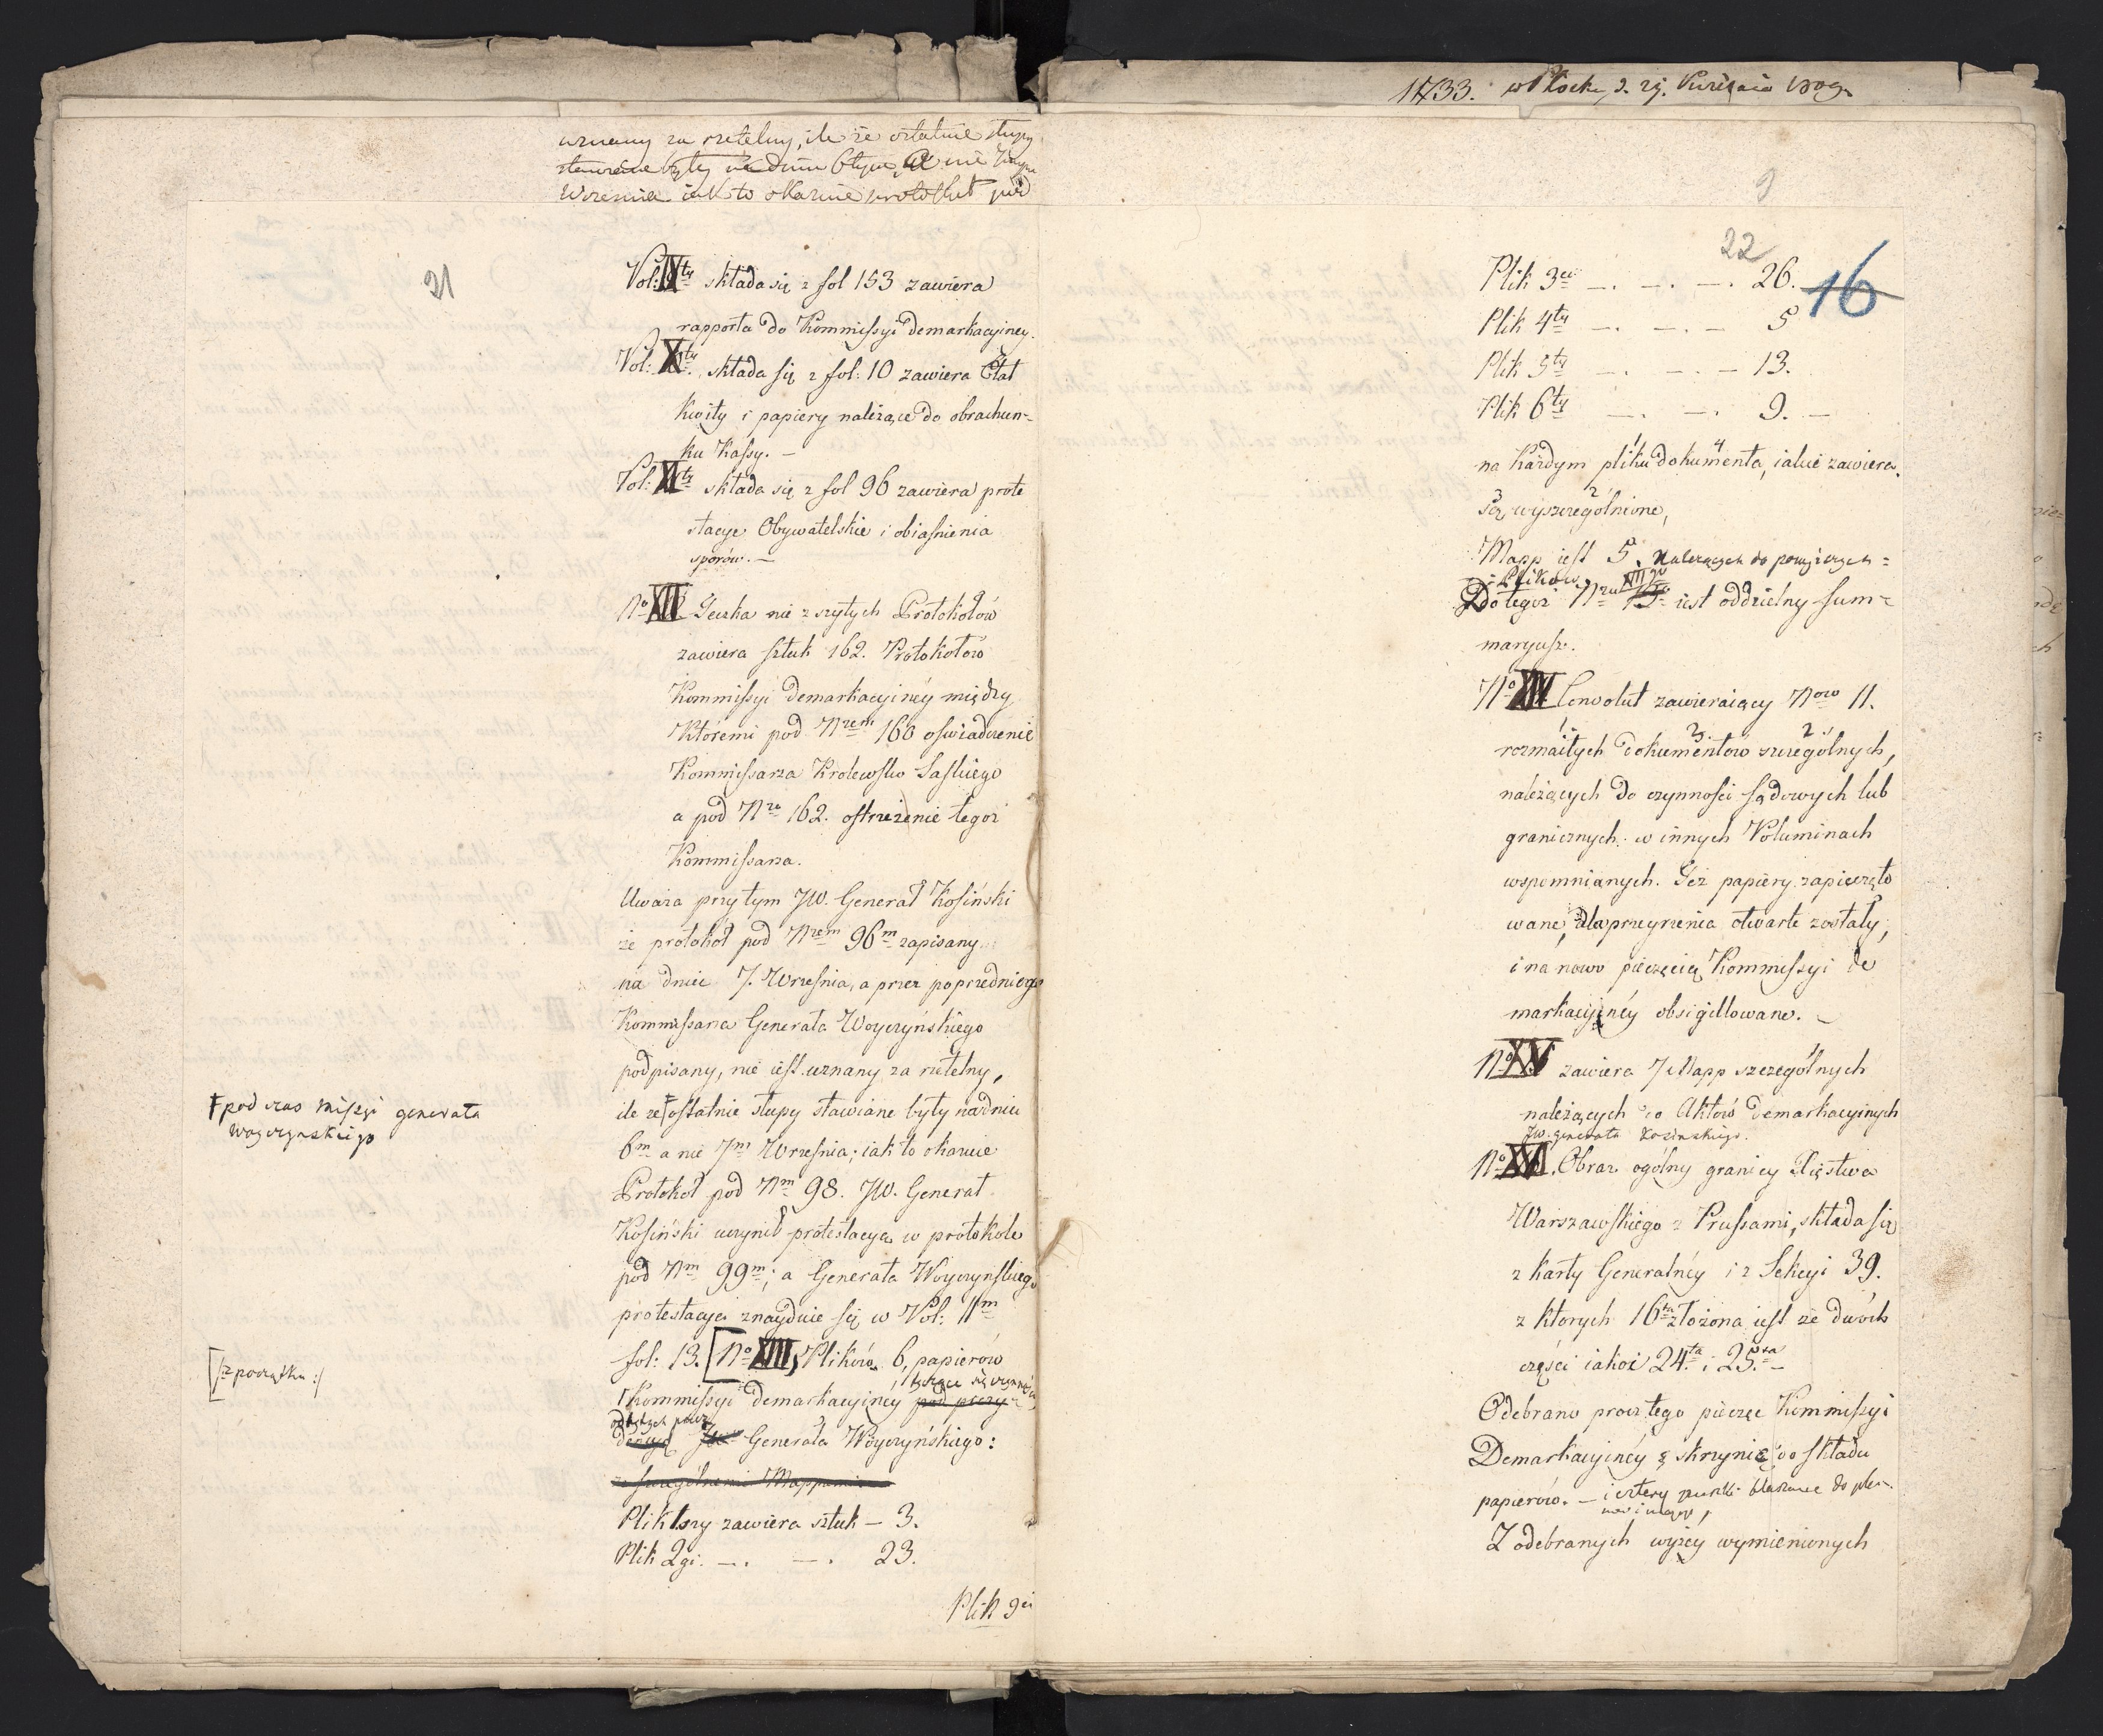 uznany za rzetelny, ile że ostatnie słupy
stawiane były na dniu 6tym, a nie 7mym
Września iak to okazuie protokuł pod
21
Vol: IXty składa się z fol 153 zawiera
rapporta do Kommissyi demarkacyiney.
Vol: Xty. składa się z fol: 10 zawiera Etat
Kwity i papiery należące do obrachun-
ku Kassy. –
Vol: XIty składa się z fol 96 zawiera prote
stacye Obywatelskie i obiaśnienia
sporów. –
No XII Teczka nie zszytych Protokołów
zawiera sztuk 162. Protokołów
Kommissyi demarkacyinéy między
Któremi pod Nrem 160 oświadczenie
Kommissarza Krolewsko Saskiego
a pod Nro 162. ostrzeżenie tegoż
Kommissarza.
Uważa przytym JW. Generał Kosiński
że protokół pod Nrem 96m zapisany
na dniu 7. Września, a przez poprzedniego
Kommissarza Generała Woyczyńskiego
podpisany, nie iest uznany za rzetelny,
ile że ostatnie słupy stawiane były na dniu
pod czas missyi generała
Woyczynskiego
6m a nie 7m Września; iak to okazuie
Protokół pod Nm 98. JW. Generał
Kosiński uczynił protestacyą w protokole
pod Nm 99m; a Generała Woyczyńskiego
protestacya znayduie się w Vol: 11m
fol: 13. [No XIII, Plików 6, papierów
[/: z początku :/
tyczące się czynności
Kommissyi demarkacyinéy pod prezy-
odbytych przez
dencyą JW Generała Woyczyńskiego:
z szczególnemi Mappami
Plik 1szy zawiera sztuk – 3.
Plik 2gi. –. –. 23.
Plik 3ci
1733. w Płocku, d. 29. Kwietnia 1809.
9
22
16
Plik 3ci –. –. –. 26.
Plik 4ty –. –. – 5
Plik 5ty – –. – 13.
Plik 6ty –. –. 9. –
na Każdym pliku dokumenta, iakie zawiera,
są wyszczególnione,
Mapp iest 5. należących do powyższych
Plików.
Do tegoż Nru XIIIgo iest oddzielny sum-
maryusz.
No XIV Convolut zawieraiący Now 11.
rozmaitych dokumentów szczególnych,
należących do czynności sądowych lub
granicznych w innych Voluminach
wspomnianych. Też papiery zapieczęto
wane, dla przeyrzenia otwarte zostały,
i na nowo pieczęcią Kommissyi de
markacyinéy obsigillowane. –
No XV zawiera 7 Mapp szczególnych
należących do Aktów demarkacyinych
JW. generała Kosinskiego.
No XVI. Obraz ogólny granicy Xięstwa
Warszawskiego z Prussami, składa się
z Karty Generalnéy i z Sekcyi 39.
z których 16ta złożona iest ze dwóch
części iakoż 24.ta i 25.ta –
Odebrano procz tego pieczęc Kommissyi
Demarkacyinéy i skrzynię do składu
papierów. – i cztery puszki blaszane do pla-
now i mapp,
Z odebranych wyżey wymienionych